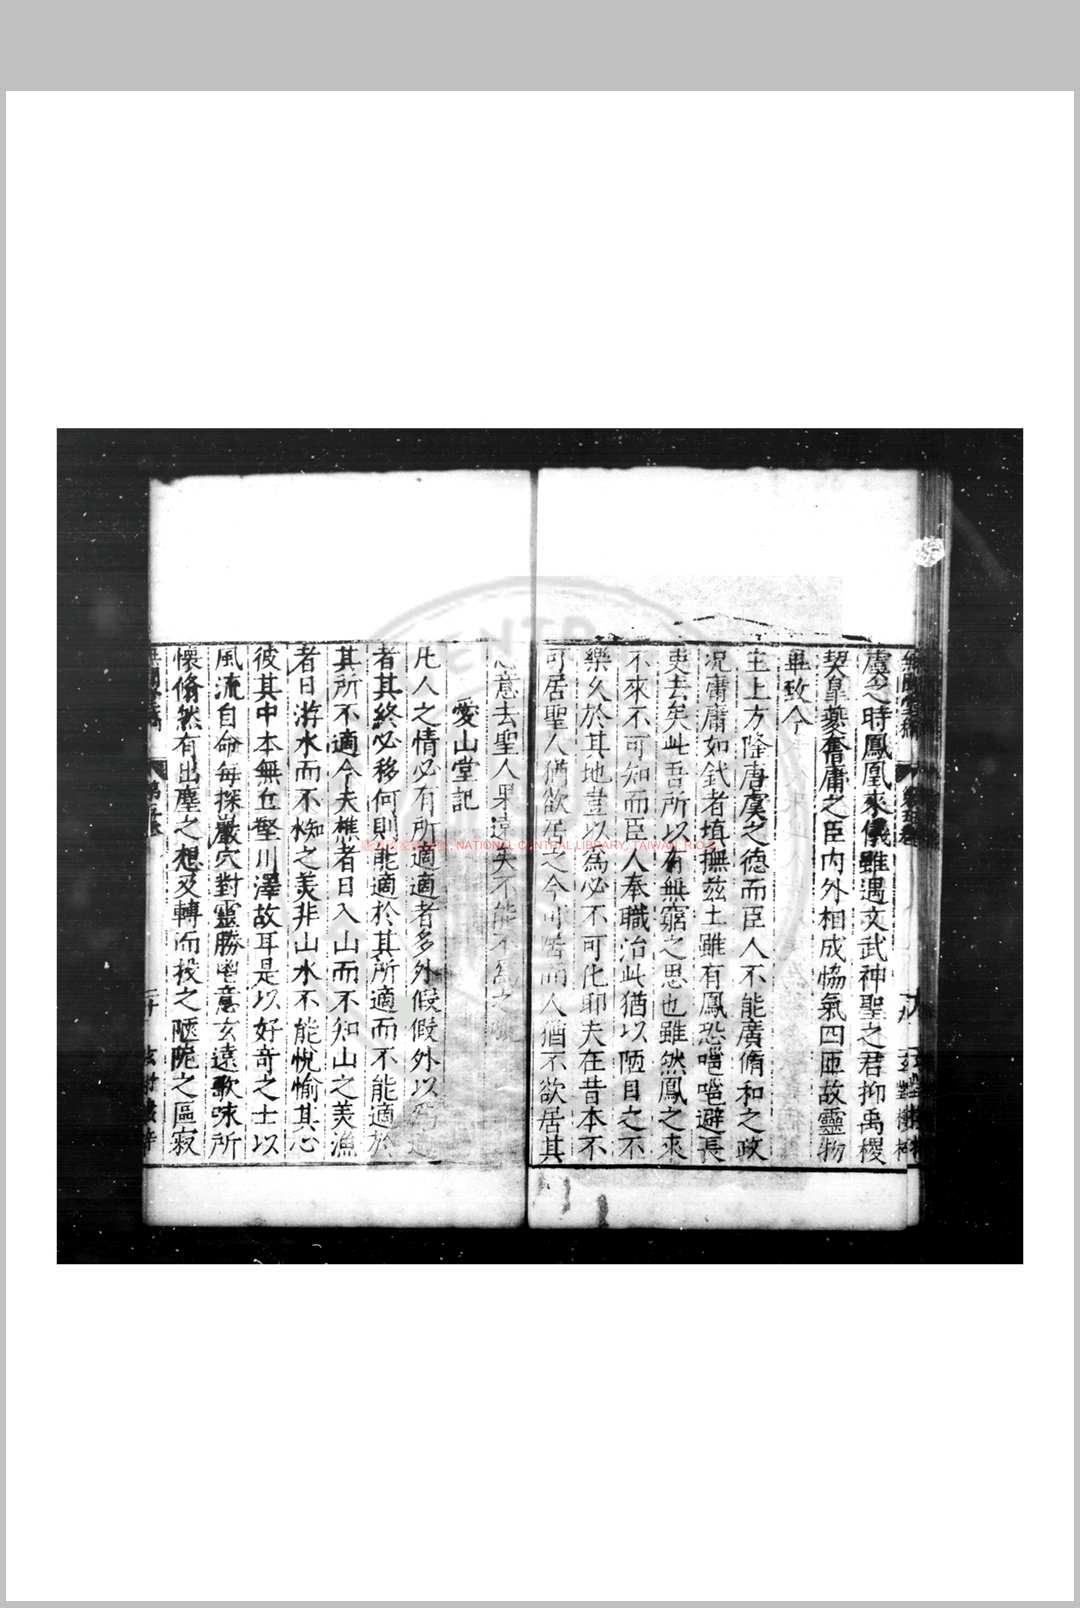 虞之時鳳凰來儀雖遇文武神聖之君抑禹稷
契皐夔奮庸之臣内外相成恊氣四匝故靈物
畢致今
主上方隆唐虞之德而臣人不能廣脩和之政
况庸庸如鈛者填撫兹土雖有鳳恐嗈嗈避長
吏去矣此吾所以有無窮之思也雖然鳳之來
不來不可知而臣人奉職治此猶以陋目之不
樂久於其地豈以為必不可化耶夫在昔本不
可居聖人猶欲居之今可居而人猶不欲居其
意去聖人果遠矣不能不為之
愛山堂記
凡人之情必有所適適者多外假假外以
者其終必移何則能適於其所適而不能適於
其所不適今夫樵者日入山而不知山之美漁
者日游水而不知之美非山水不能悅愉其心
彼其中本無丘壑川澤故耳是以好竒之士以
風流自命每探巖穴對靈勝幽意玄遠歌咏所
懷翛然有出塵之想及轉而投之陋阨之區寂
NATIONAL CENTRAL LIBRARY, TAIWAN, R.O.C.